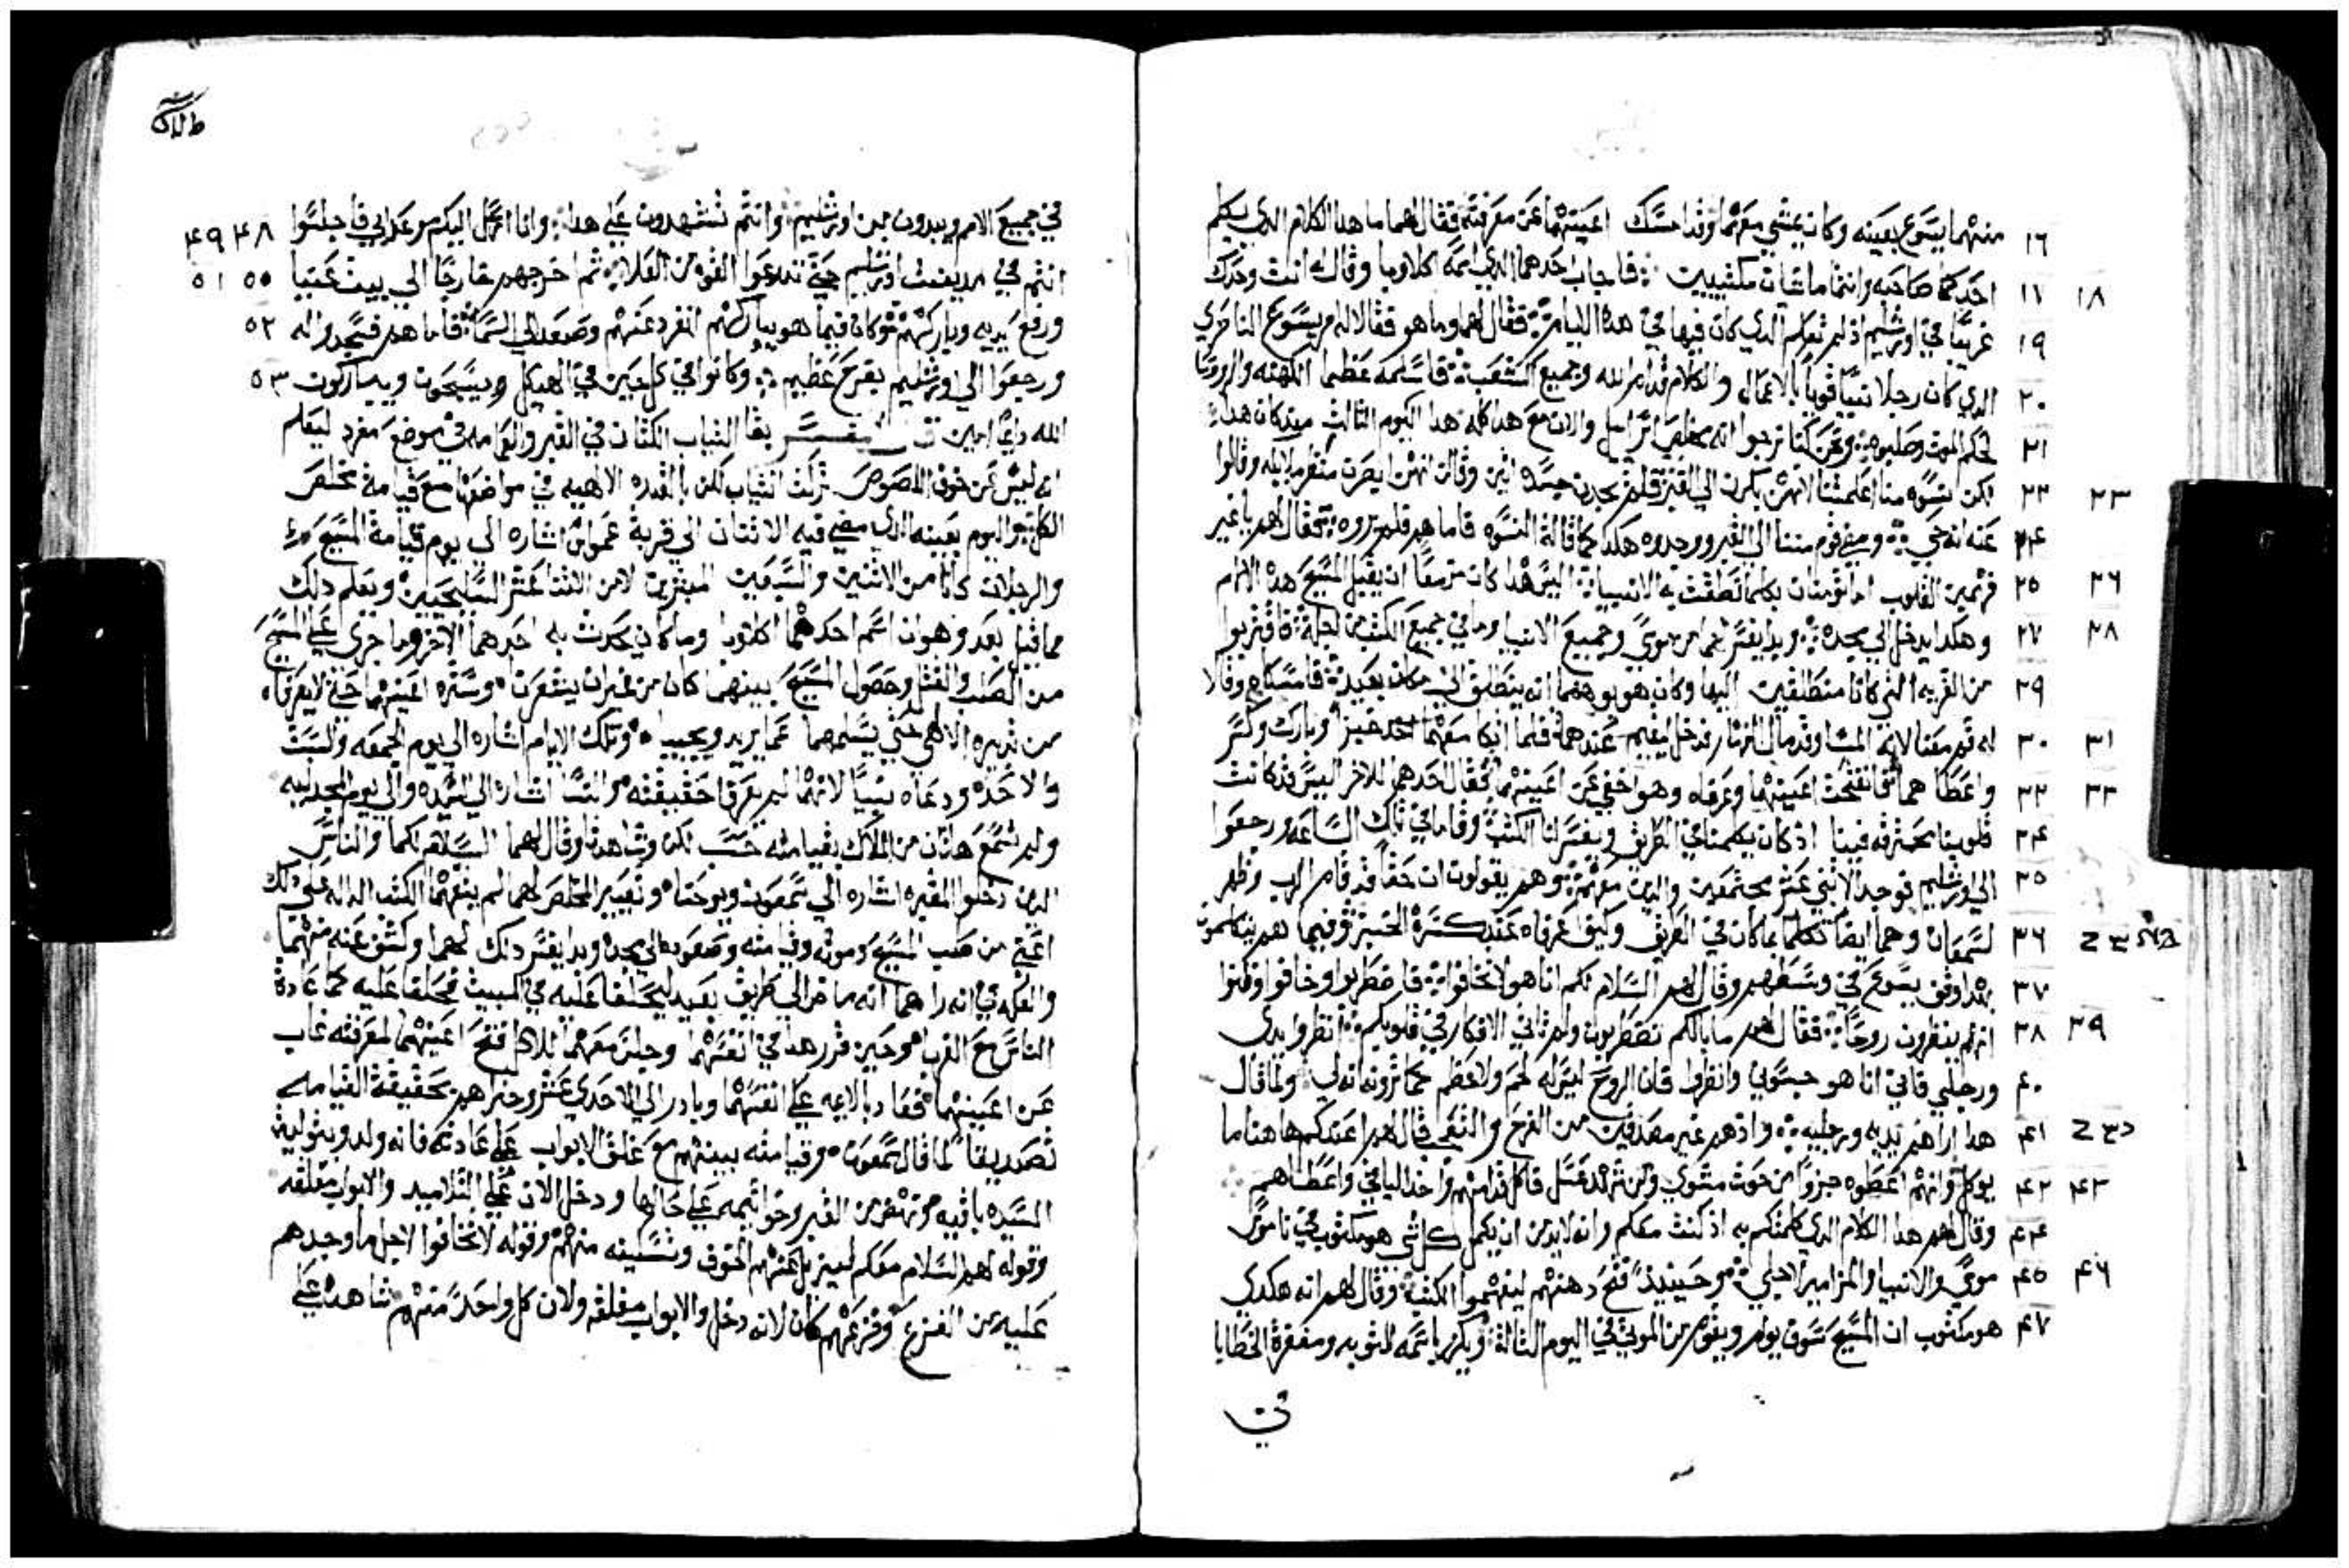 ١٦ منهما يسوع بعينه وكان يمشي معهما وقد امسك اعينهما عن معرفته فقال لهما ما هدا الكلام الدي يكلم
١٧ ١٨ احدكما صاحبه وانتما ماشيان مكتيبين فاجاب احدهما الدي اسمه اكلاوبا وقال له انت وحدك
١٩ غريبًا في اورشليم اذ لم تعلم الدي كان فيها في هده الايام فقال لهما وما هو فقالا له امر يسوع الناصري
٢٠ الدي كان رجلا نبيًا قويًا بالاعمال والكلام قدام الله وجميع الشعب فاسلمه عظما الكهنه والروسا
٢١ لحكم الموت وصلبوه ونحن كنا نرجوا انه مخلص اسراييل والان مع هدا كله هدا اليوم الثالث مند كان هدا
٢٢ ٢٣ لكن نسوه منا اعلمتنا لانهن بكرن الي القبر فلم يجدن جسده اتين وقالن انهن ابصرن منظر ملايكه وقالوا
٢٤ عنه انه حي ومضي قوم مننا الي القبر ووجدوه هكدا كما قالة النسوه فاما هو فلم يروه فقال لهم يا غير
٢٥ ٢٦ فهمين القلوب اما تومنان بكلما نطقت به الانبيا اليس هدا كان مزمعًا ان يقبل المسيح هده الالام
٢٧ ٢٨ وهكدا يدخل الي مجده وبدا يفسر لهما من موسي وجميع الانبيا وما في جميع الكتب من اجله فاقتربوا
٢٩ من القريه التي كانا منطلقين اليها وكان هو يوهمهما انه ينطلق الي مكان بعيد فامسكاه وقالا
٣٠ ٣١ له قم معنا لانه المسا وقد مال النهار فدخل ليقيم عندهما فلما اتكا معهما اخد خبزًا وبارك وكسر
٣٢ ٣٣ واعطاهما فانفتحت اعينهما وعرفاه وهو اخفي عن اعينهما فقال احدهما للاخر اليس قد كانت
٣٤ قلوبنا محترقه فينا اذ كان يكلمنا في الطريق ويفسر لنا الكتب وقاما في تلك الساعه ورجعوا
٣٥ الي اورشليم فوجدا الاثني عشر مجتمعين والدين معهم وهم يقولون ان حقًا قد قام الرب وظهر
٣٦ لسمعان وهما ايضا تكلما بما كان في الطريق وكيف عرفاه عند كسرة الخبز وفيما هم يتكلمون
٣٧ بهدا وقف يسوع في وسطهم وقال لهم السلام لكم انا هو لا تخافوا فاضطربوا وخافوا وظنوا
٣٨ ٣٩ انهم ينظرون روحًا فقال لهم ما بالكم تضطربون ولم تاتي الافكار في قلوبكم انظروا يدي
٤٠ ورجلي فاني انا هو جسوني وانظروا فان الروح ليس له لحم ولا عظم كما ترونه انه لي ولما قال
٤١ هدا اراهم يديه ورجليه واذ هم غير مصدقين من الفرح والتعجب قال لهم اعندكم هاهنا ما
٤٢ ٤٣ يوكل وانهم اعطوه جزوًا من حوت مشوي ومن شهد عسل فاكل قدامهم واخد الباقي واعطاهم
٤٤ وقال لهم هدا الكلام الدي كلمتكم به اذ كنت معكم وانه لابد من ان يكمل كل شي هو مكتوب في ناموس
٤٥ ٤٦ موسي والانبيا والمزامير لاجلي وحينيدٍ فتح دهنهم ليفهموا الكتب وقال لهم انه هكدي
٤٧ هو مكتوب ان المسيح سوف يولم ويقوم من الموتي في اليوم الثالث ويكرز باسمه للتوبه ومغفرة الخطايا
في
في جميع الامم ويبدون من اورشليم وانتم تشهدون علي هدا وانا ارسل اليكم موعد ابي فاجلسوا ٤٨ ٤٩
انتم في مدينت اورشليم حتي تتدرعوا القوه من العلا ثم اخرجهم خارجًا الي بيت عنيا ٥٠ ٥١
ورفع يديه وباركهم وكان فيما هو يباركهم انفرد عنهم وصعد الي السما فاما هم فسجدوا له ٥٢
ورجعوا الي اورشليم بفرح عظيم وكانوا في كل حين في الهيكل ويسبحون ويباركون ٥٣
الله دايمًا امين تفسير بقا الثياب الكتان في القبر والعمامه في موضع مفرد ليعلم
انه ليس عن خوف اللصوص تركت الثياب لكن بالقدره الالهيه في مواضعها مع قيامة مخلص
الكل واليوم بعينه الدي مضي فيه الاثنان الي قرية عمواس اشاره الي يوم قيامة المسيح
والرجلان كانا من الاثنين والسبعين المبشرين لا من الاثنا عشر السليحيين ويعلم دلك
مما قيل بعد وهو ان اسم احدهما اكلاوبا وما كان يحدث به احدهما الاخر وما جري علي المسيح
من الصلب والقتل وحصول المسيح بينهما كان من غير ان يشعرن وستره اعينهما حتي لا يعرفاه
من تدبيره الالاهي حتي يسلهما عما يريد ويجيباه وتلك الايام اشاره الي يوم الجمعه والسبت
والاحد ودعاه نبيًا لانهما لم يعرفا حقيقته والنسا اشاره الي السيده والي يوم المجدليه
ولم تسمع هاتان من الملاك بقيامته حسب لكن وشاهدتا وقال لهما السلام لكما والناس
الدين دخلوا المقبره اشاره الي سمعون ويوحنا وتعيير المخلص لهما لم يفهما الكتب الداله علي دلك
اعني من صلب المسيح وموته وقيامته وصعوده الي مجده وبدا يفسر دلك لهما وكشف عنه منهما
والعله في انه راهما انه ماض الي طريق بعيد ليحلفا عليه في المبيت فحلفا عليه كما عادة
الناس مع الغربا وحين قرر هدا في انفسهما وجلس معهما للاكل فتح اعينهما لمعرفته غاب
عن اعينهما فعاد بالايمه علي انفسهما وبادر الي الاحدي عشر وخبراهم بحقيقة القيامه
تصديقًا لما قال سمعون وقيامته بينهم مع غلق الابواب علي عادته فانه ولد وبتولية
السيده باقيه ونهض من القبر وخواتيمه علي حالها ودخل الان علي التلاميد والابواب مغلقه
وقوله لهم السلام معكم ليزيل عنهم الخوف وتسكينه منهم وقوله لا تخافوا لاجل ما وجدهم
عليه من الفزع وفزعهم كان لانه دخل والابواب مغلقه ولان كل واحدٍ منهم شاهده علي